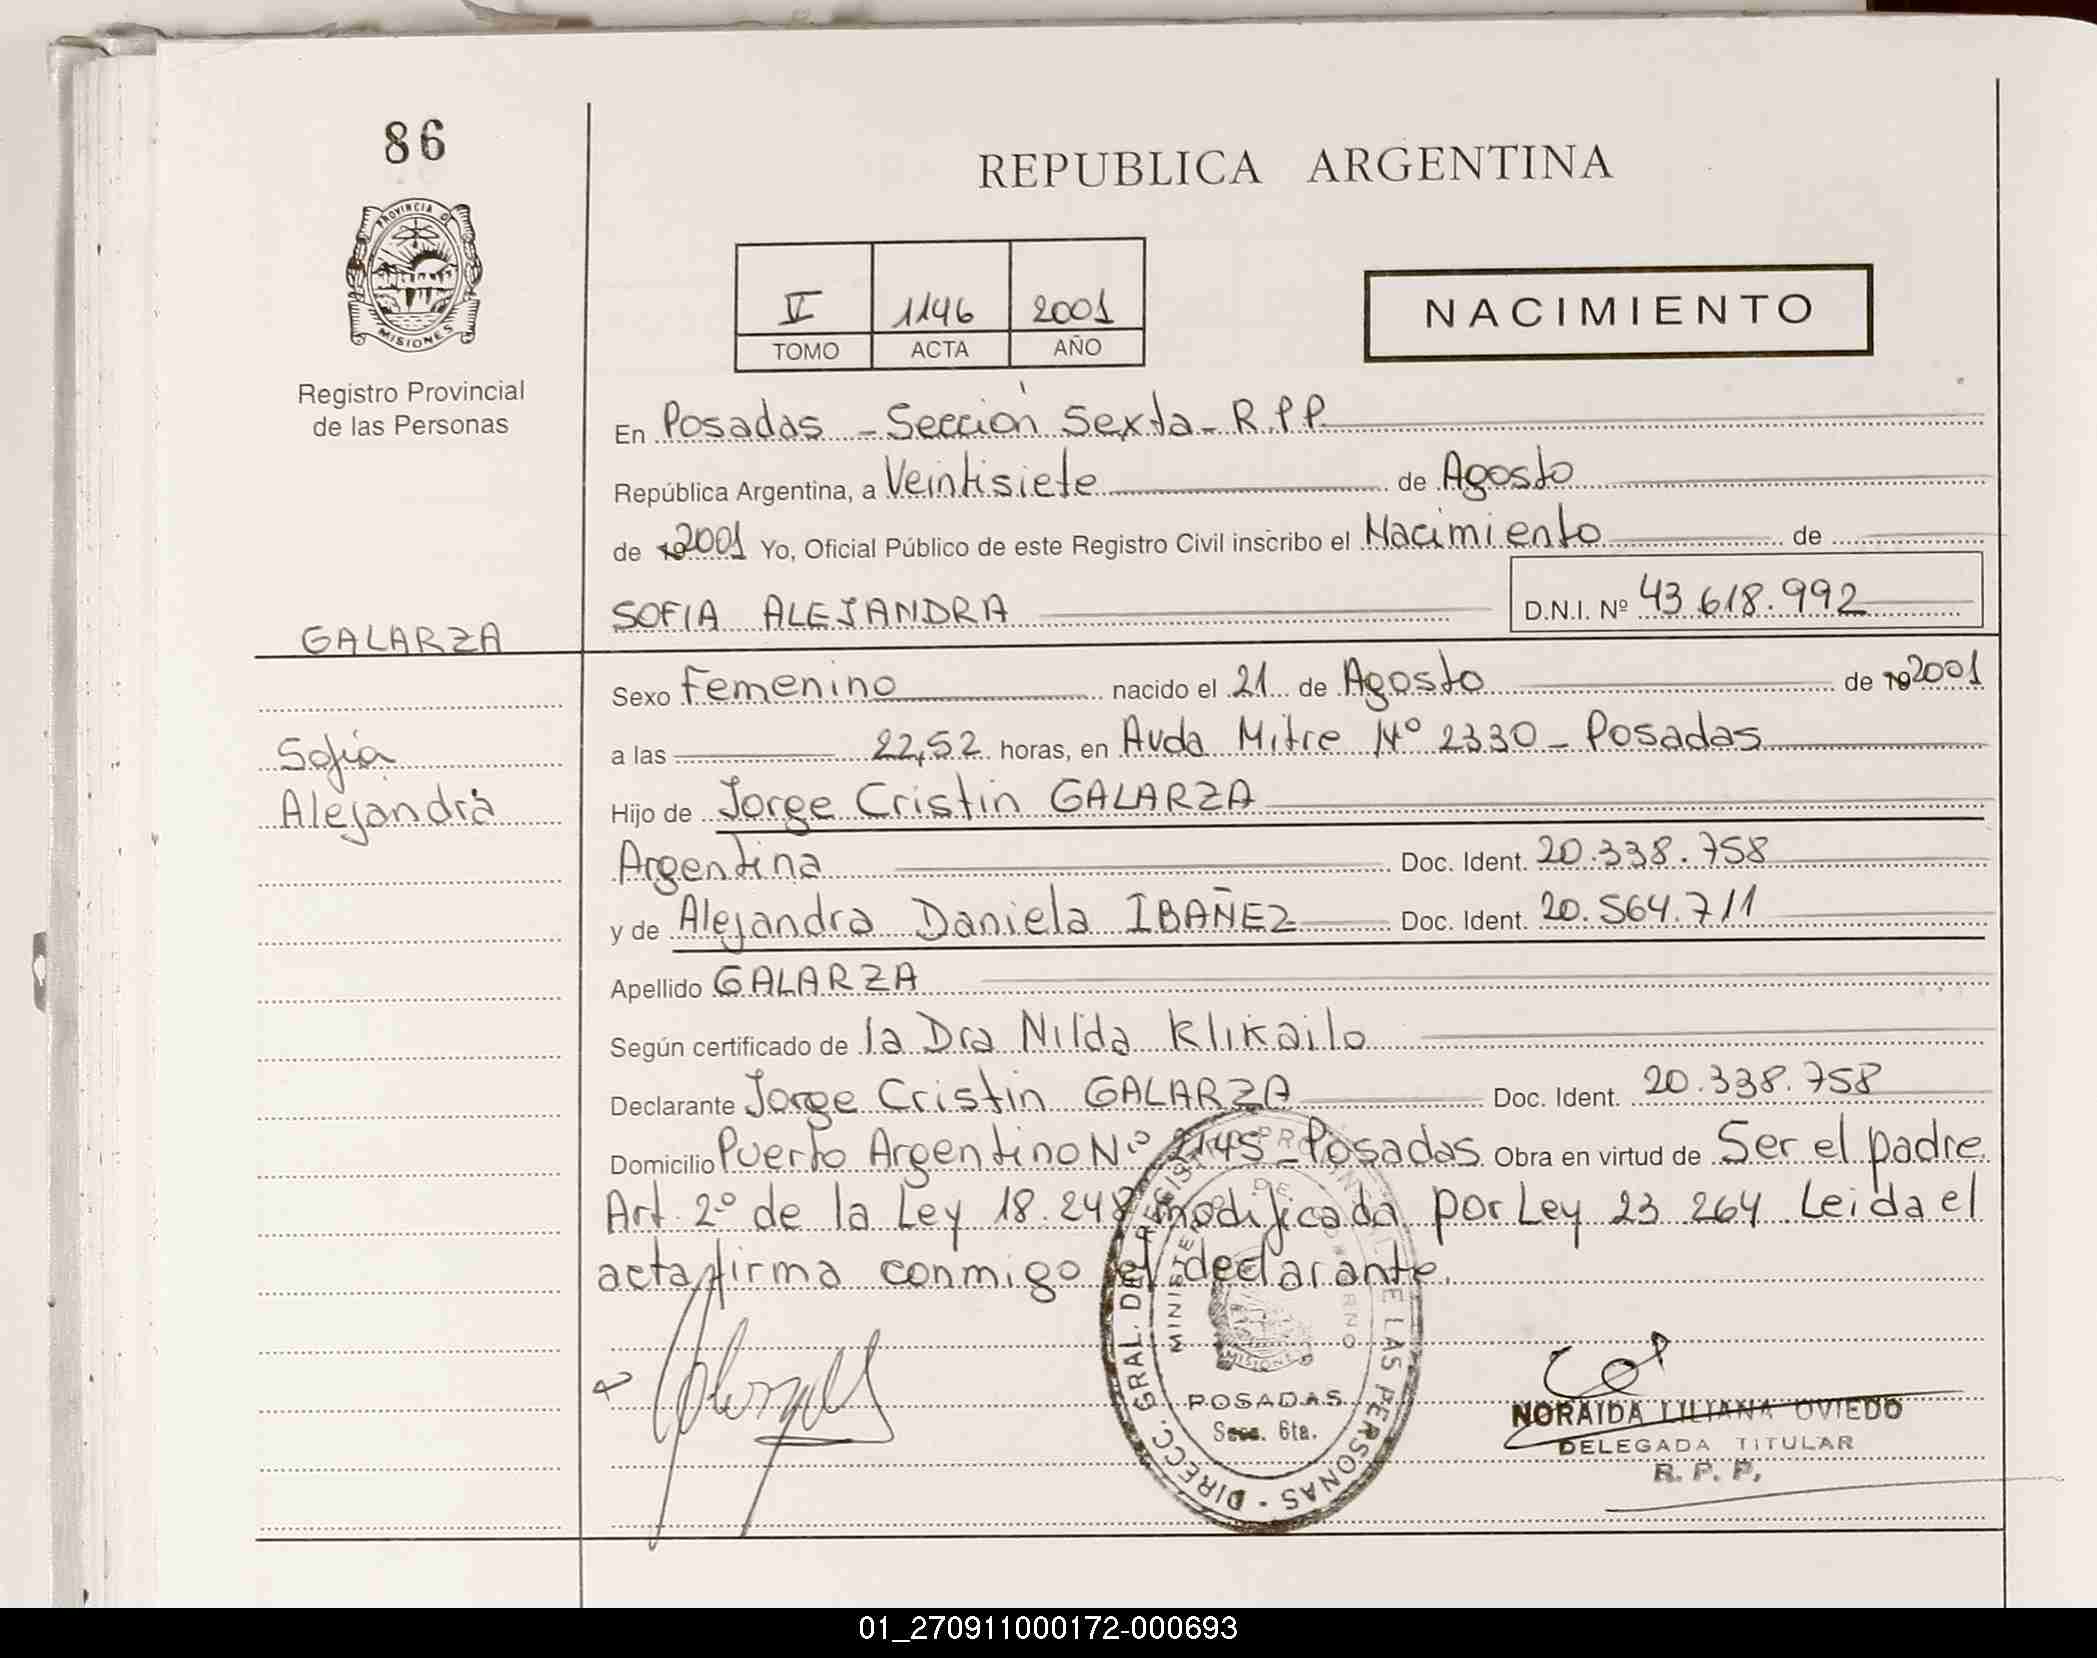 86
PROVINCIA DE
MISIONES
Registro Provincial
de las Personas
REPUBLICA ARGENTINA
V 1146 2001
TOMO ACTA AÑO
NACIMIENTO
En Posadas - Sección Sexta - R.P.P.
República Argentina, a Veintisiete de Agosto
de 19 2001 Yo, Oficial Público de este Registro Civil inscribo el Nacimiento de
SOFIA ALEJANDRA D.N.I. Nº 43.618.992
GALARZA
Sexo Femenino nacido el 21 de Agosto de 19 2001
Sofía
Alejandra
a las 22,52 horas, en Avda Mitre Nº 2330 - Posadas
Hijo de Jorge Cristin GALARZA
Argentina Doc. Ident. 20.338.758
y de Alejandra Daniela IBAÑEZ Doc. Ident. 20.564.711
Apellido GALARZA
Según certificado de la Dra Nilda Klikailo
Declarante Jorge Cristin GALARZA Doc. Ident. 20.338.758
Domicilio Puerto Argentino Nº 2145 - Posadas Obra en virtud de Ser el padre
Art. 2º de la Ley 18.248 modificada por Ley 23 264 Leida el
acta firma conmigo el declarante.
DIRECC. GRAL. DEL REGIST. PROVINCIAL DE LAS PERSONAS
MINISTERIO DE GOBIERNO
MISIONES
POSADAS
Secc. 6ta.
NORAIDA LILIANA OVIEDO
DELEGADA TITULAR
R. P. P.
01_270911000172-000693